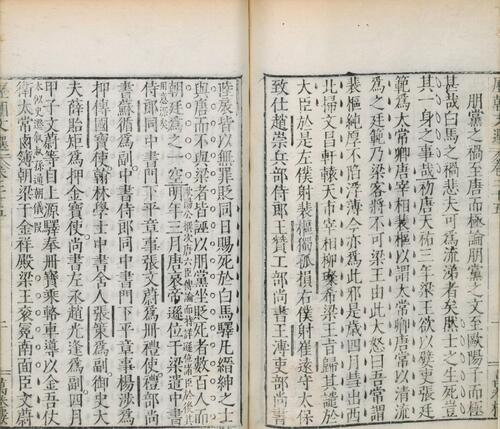 朋黨之禍至唐而極論朋黨至歐陽子而極
甚哉白馬之禍悲夫可爲流涕者矣然士之生死豈
其一身之事哉初唐天祐三年梁王欲以嬖吏張廷
範爲太常卿唐宰相裴樞以謂太常卿唐常以清流
爲之廷範乃梁客將不可梁王由此大怒曰吾常謂
裴樞純厚不陷浮薄今亦爲此邪是歲四月彗出西
北掃文昌軒轅天市宰相柳璨希梁王旨歸其譴於
大臣於是左僕射裴樞獨孤損右僕射崔遠守太保
致仕趙崇兵部侍郎王贊工部尚書王溥吏部尚書
陸扆皆以無罪貶同日賜死於白馬驛凡縉紳之士
與唐而不與梁者皆誣以朋黨坐貶死者數百人而
歐陽公撰次唐六臣傳論而特詳遜位諸臣於後其
朝廷爲之一空明年三月唐哀帝遜位于梁遣中書
用意深矣
侍郎同中書門下平章事張文蔚爲冊禮使禮部尚
書蘇循爲副中書侍郎同中書門下平章事楊涉爲
押傳國寶使翰林學士中書舍人張策爲副御史大
夫薛貽矩爲押金寶使尚書左丞趙光逢爲副四月
甲子文蔚等自上源驛奉冊寶乘輅車導以金吾仗
衛太常鹵簿朝梁于金祥殿梁王袞冕南面臣文蔚
二